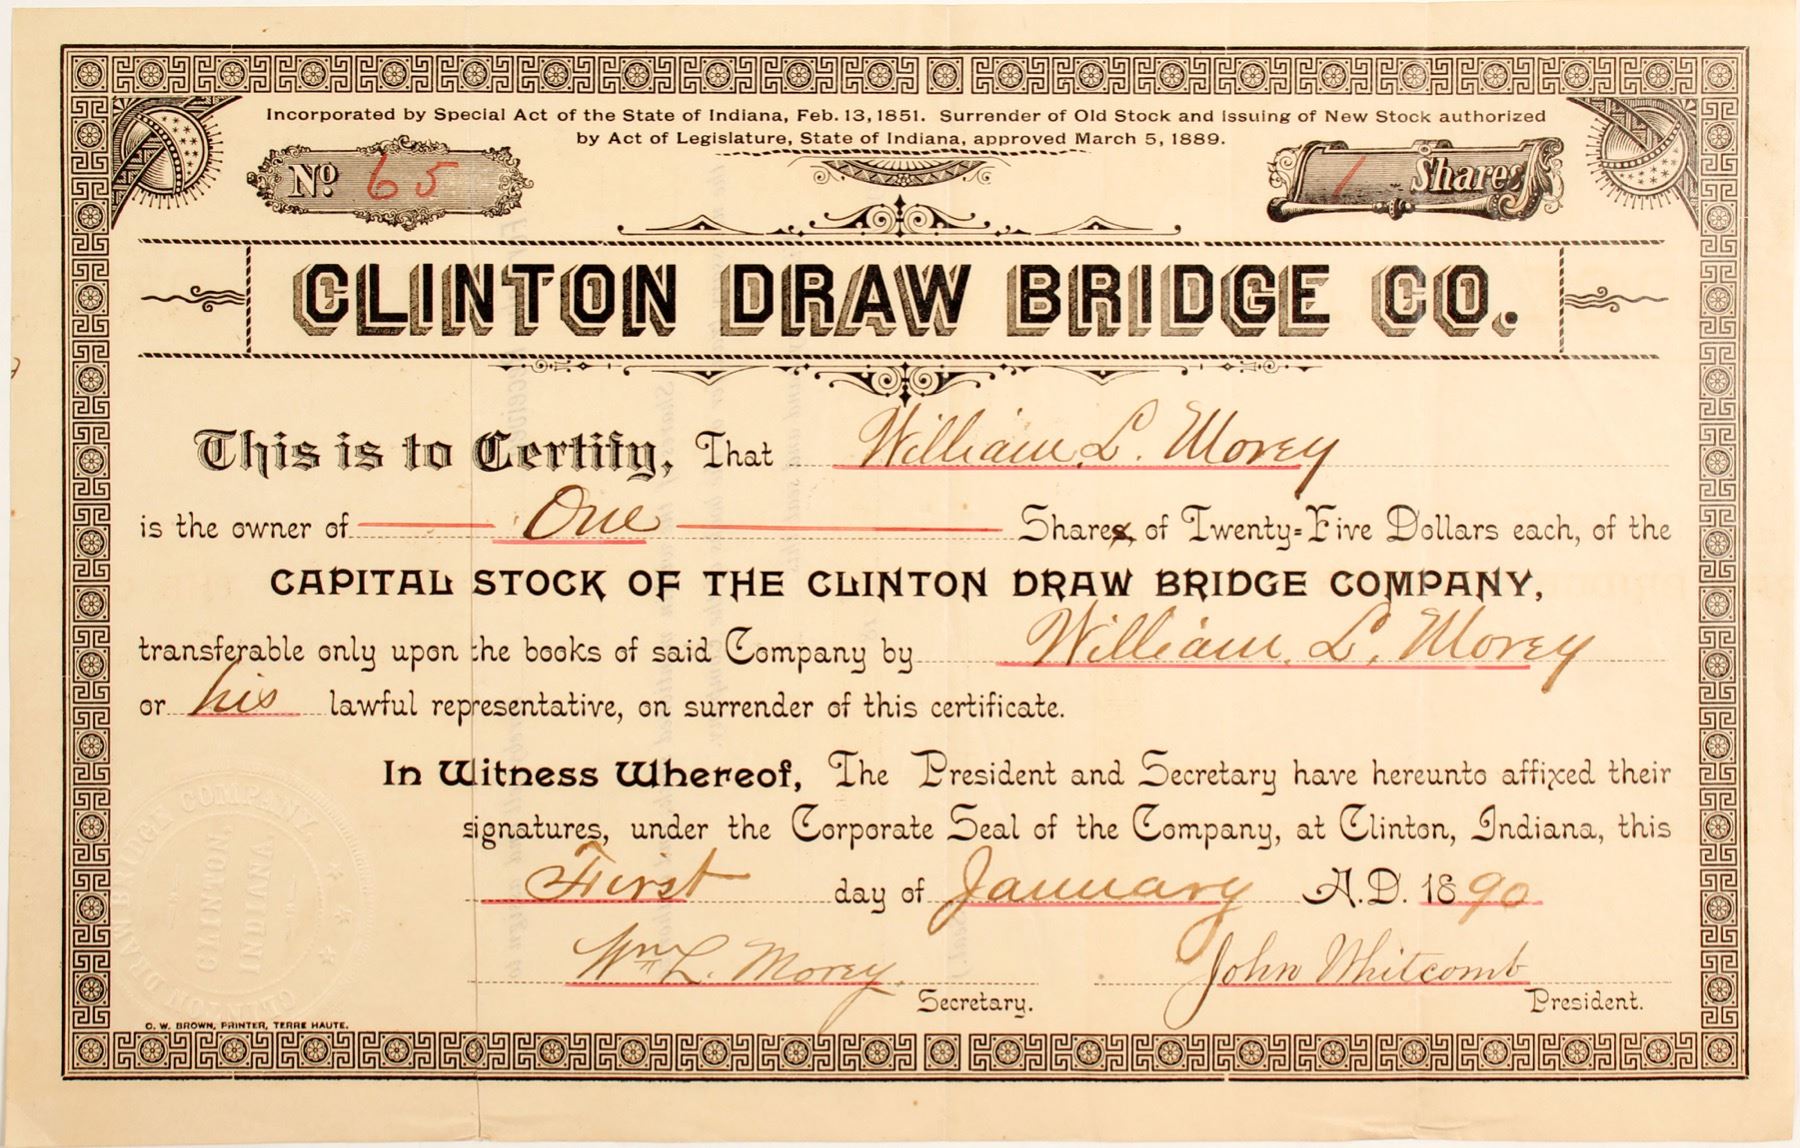 Incorporated by Special Act of the State of Indiana, Feb. 13, 1851. Surrender of Old Stock and issuing of New Stock authorized
by Act of Legislature, State of Indiana, approved March 5, 1889.
No 65
1 Shares
CLINTON DRAW BRIDGE CO.
This is to Certify, That William L. Morey
is the owner of One Shares of Twenty=Five Dollars each, of the
CAPITAL STOCK OF THE CLINTON DRAW BRIDGE COMPANY,
transferable only upon the books of said Company by William L. Morey
or his lawful representative, on surrender of this certificate.
In Witness Whereof, The President and Secretary have hereunto affixed their
signatures, under the Corporate Seal of the Company, at Clinton, Indiana, this
First day of January A.D. 1890
Wm L. Morey Secretary.
John Whitcomb President.
CLINTON DRAW BRIDGE COMPANY,
CLINTON,
INDIANA.
C. W. BROWN, PRINTER, TERRE HAUTE.